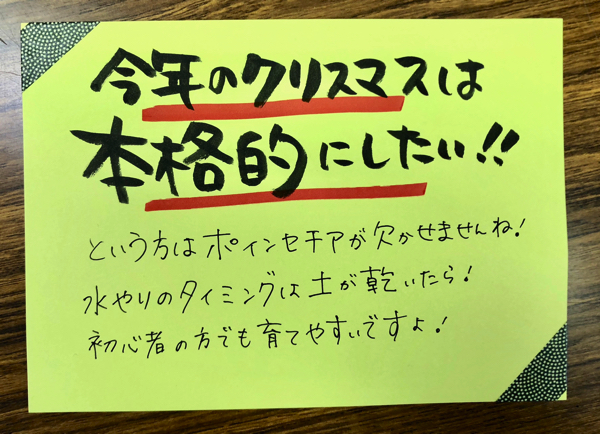 今年のクリスマスは
本格的にしたい!!
という方はポインセチアが欠かせませんね!
水やりのタイミングは土が乾いたら!
初心者の方でも育てやすいですよ!